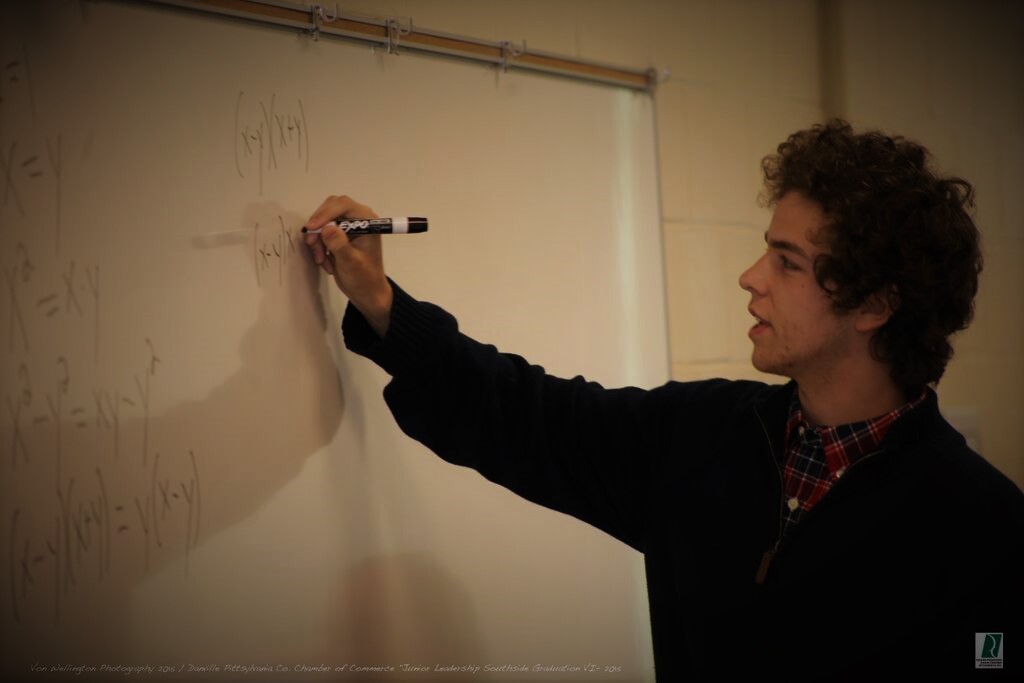 x = y
x² = x·y
x² - y² = xy - y²
(x-y)(x+y) = y(x-y)
(x-y)(x+y)
(x-y)(x
EXPO
Von Wellington Photography 2015 / Danville Pittsylvania Co. Chamber of Commerce "Junior Leadership Southside Graduation V.I- 2015